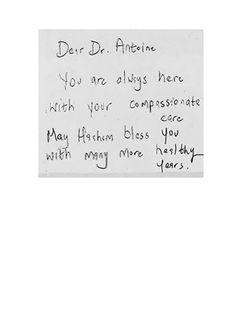 Dear Dr. Antoine
You are always here
with your compassionate
care
May Hashem bless you
with many more healthy
years.